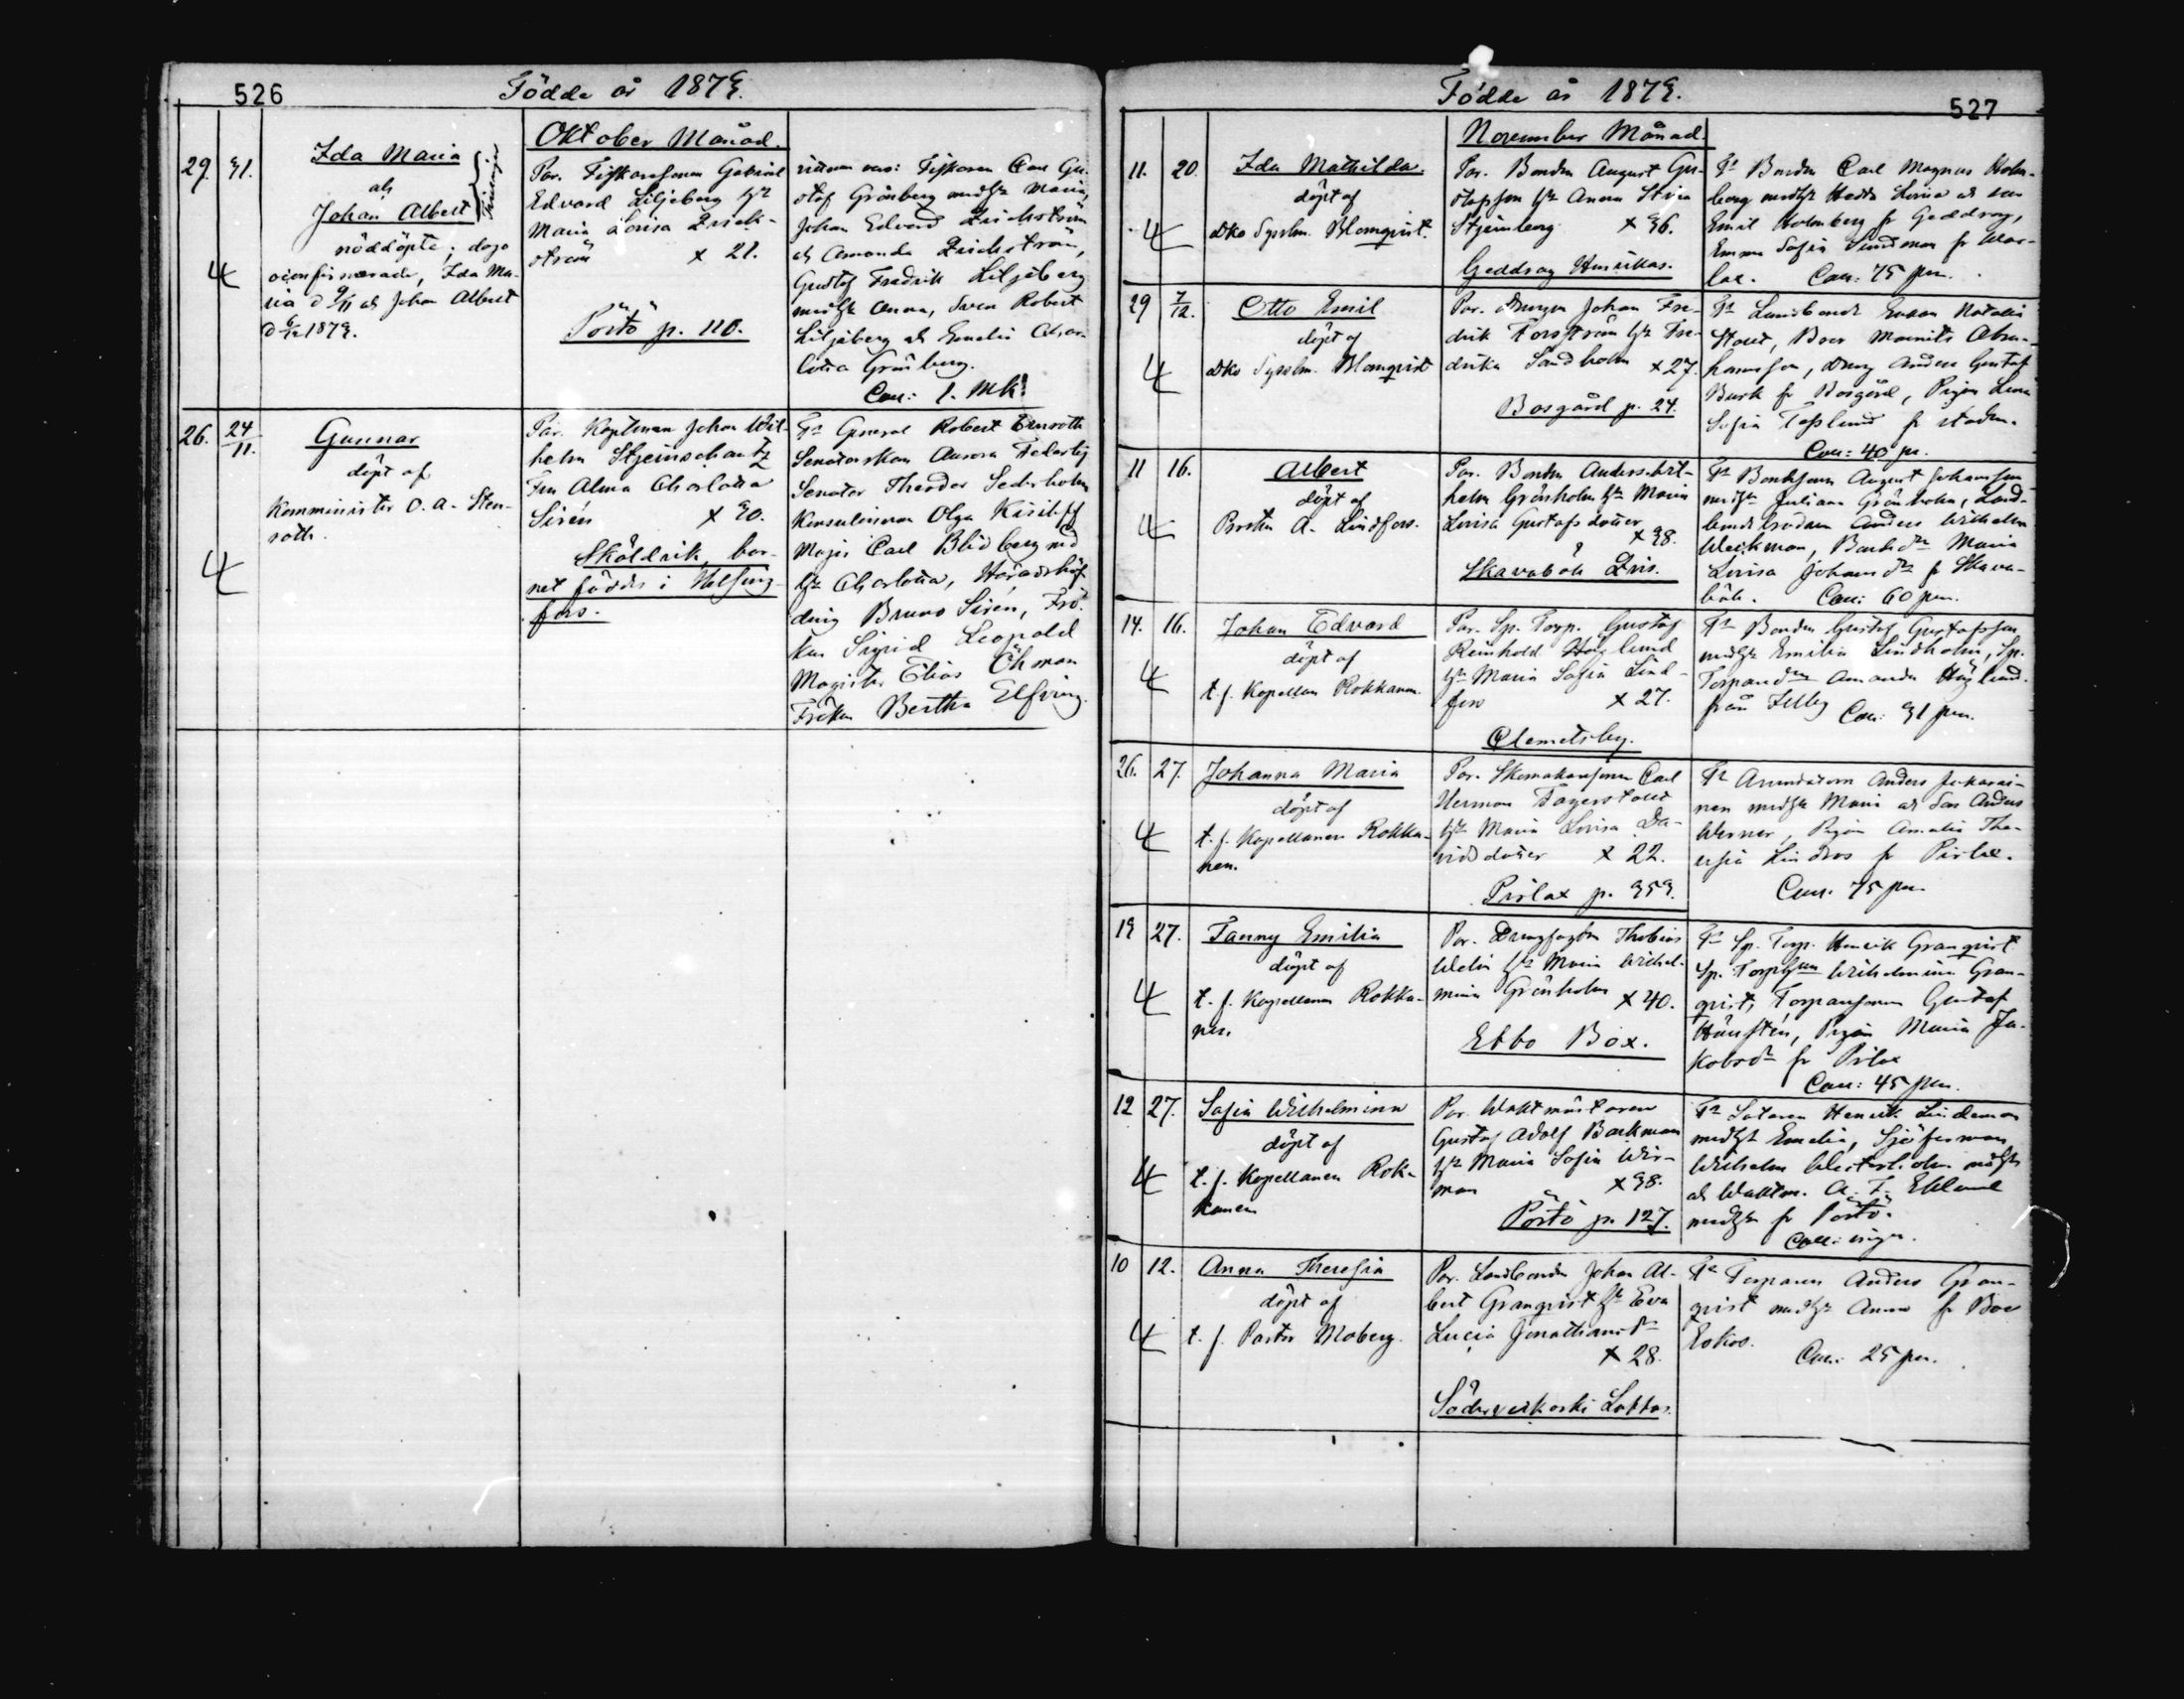 526
Födde år 1873.
Oktober Månad.
29. 31.
Ida Maria
och
Johan Albert
Tvillingar
nöddöpte, dopo
acten firnerade, Ida Ma-
ria d 9/11 och Johan Albert
d 6/12 1873.
4
Par. Fiskaresonen Gabriel
Edvard Liljeberg h:u
Maria Lovisa Erick-
ström x 21.
Pörtö p. 110.
vittnen voro: Fiskaren Carl Gu-
stof Grönberg med h:u Maria,
Johan Edvard Erickström
och Amanda Erickström,
Gustaf Fredrik Liljeberg
med h:u Anna, Sven Robert
Liljeberg och Emelie Char-
lotta Grönberg.
Coll: 1. Mk.
26. 24/11.
Gunnar
döpt af
Komminister O. A. Sten-
roth.
4
Par. Kaptenen Johan Wil-
helm Stjernschantz
Fru Alma Charlotta
Sirén x 30.
Sköldvik, bar-
net föddes i Helsing-
fors.
F:r General Robert Enroth
Senatorskan Aurora Federley
Senator Theodor Sederholm
Konsulinnan Olga Kiseleff
Major Carl Blidberg med
h:u Charlotta, Häradshöf-
ding Bruno Sirén, Frö-
ken Sigrid Leopold
Magister Elias Öhman
Fröken Bertha Elfving.
Födde år 1873.
527
November Månad.
11. 20.
Ida Mathilda.
döpt af
vko Sysslm. Blomqvist.
4
Par. Bonden August Gu-
stafsson h:u Anna Stina
Stjernberg x 36.
Geddrag Henrikas.
F:r Bonden Carl Magnus Holm-
berg med h:u Hedda Lovisa och son
Emil Holmberg fr Geddrag,
Emma Sofia Sundman fr Wor-
lax. Coll: 75 pen.
29 7/12.
Otto Emil
döpt af
vko Sysslm. Blomqvist
4
Par. Drengen Johan Fre-
drik Forsström h:u Fre-
drika Sandholm x 27.
Bosgård p. 24.
F:r Landbonde Enkan Natalia
Stolt, Boer Mauritz Abra-
hamsson, dreng Anders Gustaf
Burk fr Bosgård, Pigan Lovisa
Sofia Teslund fr staden.
Coll: 40 pen.
11 16.
Albert
döpt af
Prosten A. Lindfors.
4
Par. Bonden Anders Wil-
helm Grönholm h:u Maria
Lovisa Gustafs dotter
x 38.
Skavaböle Dris.
F:r Bondsonen August Johansson
med h:u Juliana Grönholm, Land-
bonde brodren Anders Wilhelm
Weckman, Bonde d:r Maria
Lovisa Johans d:r fr Skava-
böle. Coll: 60 pen.
14. 16.
Johan Edvard
döpt af
t. f. Kapellan Rokkanen.
4
Par. Sp. Torp. Gustaf
Reinhold Höglund
h:u Maria Sofia Lind-
fors x 27.
Clemetsby.
F:r Bonden Gustaf Gustafsson
med h:u Emilia Lindholm, Sp.
Torpare d:r Amanda Höglund.
från Illby Coll: 31 pen.
26. 27.
Johanna Maria
döpt af
t. f. Kapellanen Rokka-
nen.
4
Par. Skomakaresonen Carl
Herman Fagerstedt
h:u Maria Lovisa Da-
vids dotter x 22.
Pirlax p. 353.
F:r Arrendatorn Anders Jokinai-
nen med h:u Maria och son Anders
Werner, Pigan Amalia The-
resia Lindros fr Pirlax.
Coll: 75 pen
19 27.
Fanny Emilia
döpt af
t. f. Kapellanen Rokka-
nen.
4
Par. Drengfogden Thobias
Welin h:u Maria Wilhel-
mina Grönholm x 40.
Ebbo Box.
F:r Sp. Torp. Henrik Granqvist
Sp. Torp h:u Wilhelmina Gran-
qvist, Torparesonen Gustaf
Hönstén, Pigan Maria Ja-
kobs d:r fr Pirlax
Coll: 45 pen.
12 27.
Sofia Wilhelmina
döpt af
t. f. Kapellanen Rok-
kanen
4
Par. Waktmästaren
Gustaf Adolf Backman
h:u Maria Sofia Wik-
man x 38.
Pörtö p. 127.
F:r Lotsen Henrik Lindeman
med h:u Emelia, Sjöferman
Wilhelm Westerholm med h:u
och Waktm. A. F. Eklund
med h:u fr Pörtö.
Coll: ingen.
10 12.
Anna Theresia
döpt af
t. f. Pastor Moberg.
4
Par. Landbonden Johan Al-
bert Granqvist h:u Eva
Lucia Jonathans d:r
x 28.
Söderveckoski Lakbas.
F:r Torparen Anders Gran-
qvist med h:u Anna fr Boe
Eskos.
Coll: 25 pen.